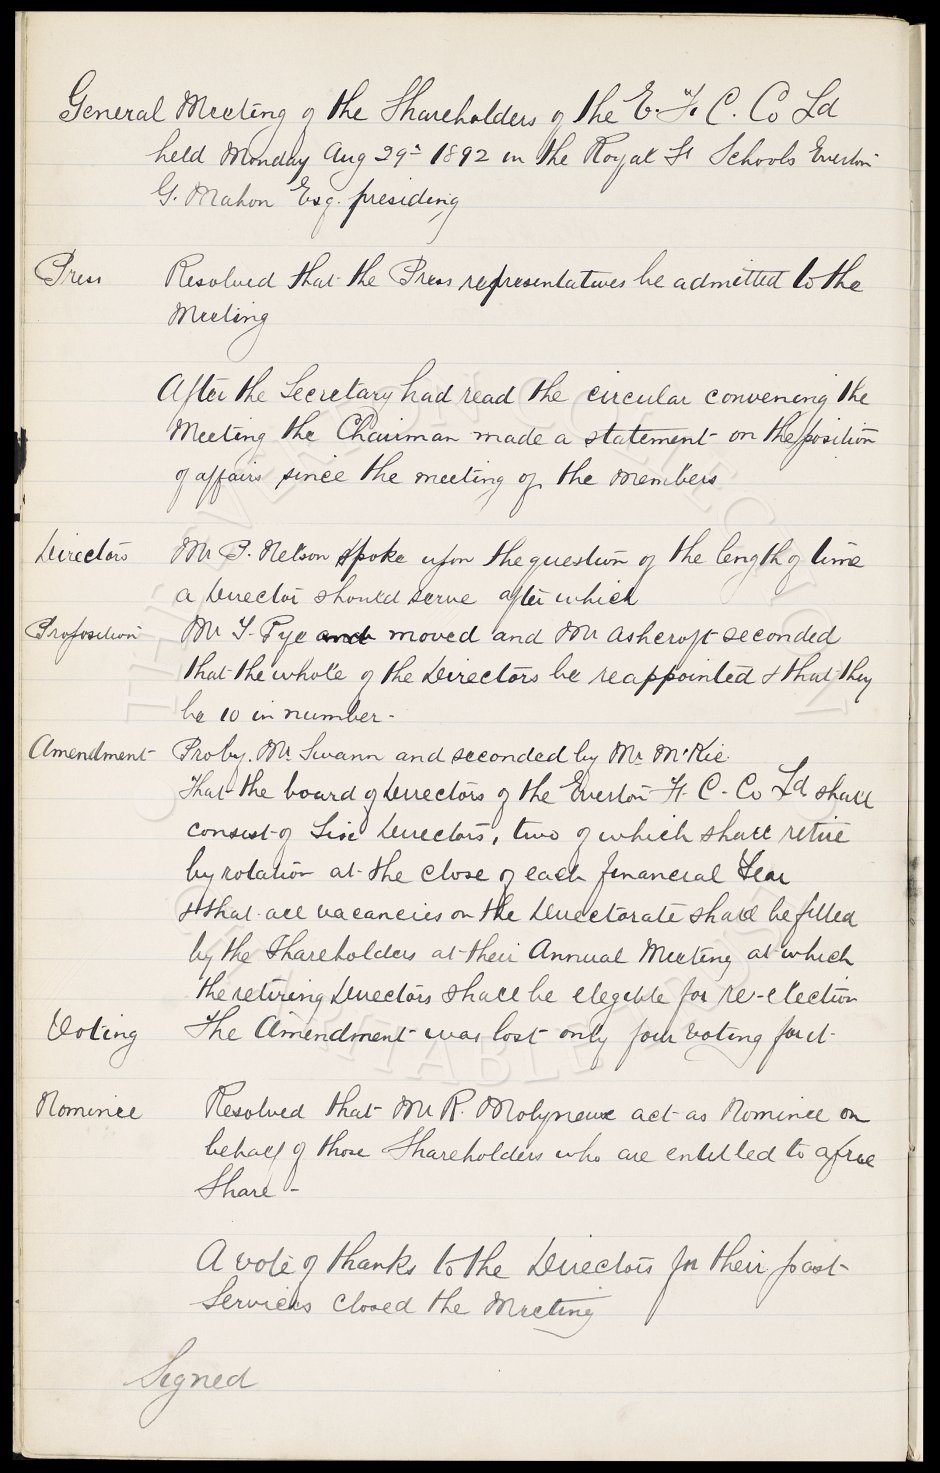 General Meeting of the Shareholders of the E. F. C. Co Ld
held Monday Aug 29th 1892 in the Royal St Schools Everton
G. Mahon Esq. presiding
Press Resolved that the Press representatives be admitted to the
Meeting
After the Secretary had read the circular convening the
Meeting the Chairman made a statement on the position
of affairs since the meeting of the Members
Directors Mr P. Nelson spoke upon the question of the length of time
a Director should serve after which
Proposition Mr T. Pye and moved and Mr Ashcroft seconded
that the whole of the Directors be reappointed & that they
be 10 in number -
Amendment Pro by. Mr. Swann and seconded by Mr McKie
That the board of Directors of the Everton F. C. Co Ld shall
consist of Six Directors, two of which shall retire
by rotation at the close of each financial Year
& that all vacancies on the Directorate shall be filled
by the Shareholders at their Annual Meeting at which
the retiring Directors shall be elegible for re-election
Voting The Amendment was lost only four voting for it
Nominee Resolved that Mr R. Molyneux act as Nominee on
behalf of those Shareholders who are entitled to a free
Share -
A vote of thanks to the Directors for their past
Services closed the Meeting
Signed
THE EVERTON COLLECTION
CHARITABLE TRUST